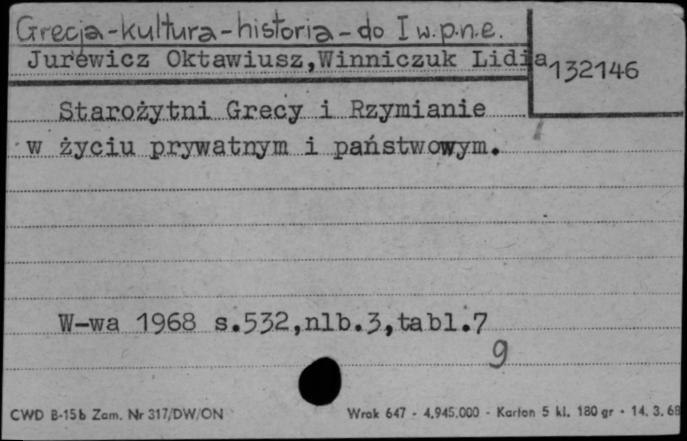 Grecja-kultura-historia-do I w.p.n.e.
Jurewicz Oktawiusz,Winniczuk Lidia
132146
Starożytni Grecy i Rzymianie
w życiu prywatnym i państwowym.
W-wa 1968 s.532,nlb.3,tabl.7
9
CWD B-15b Zam. Nr 317/DW/ON
Wrak 647 - 4.945.000 - Karton 5 kl. 180 gr - 14. 3. 68